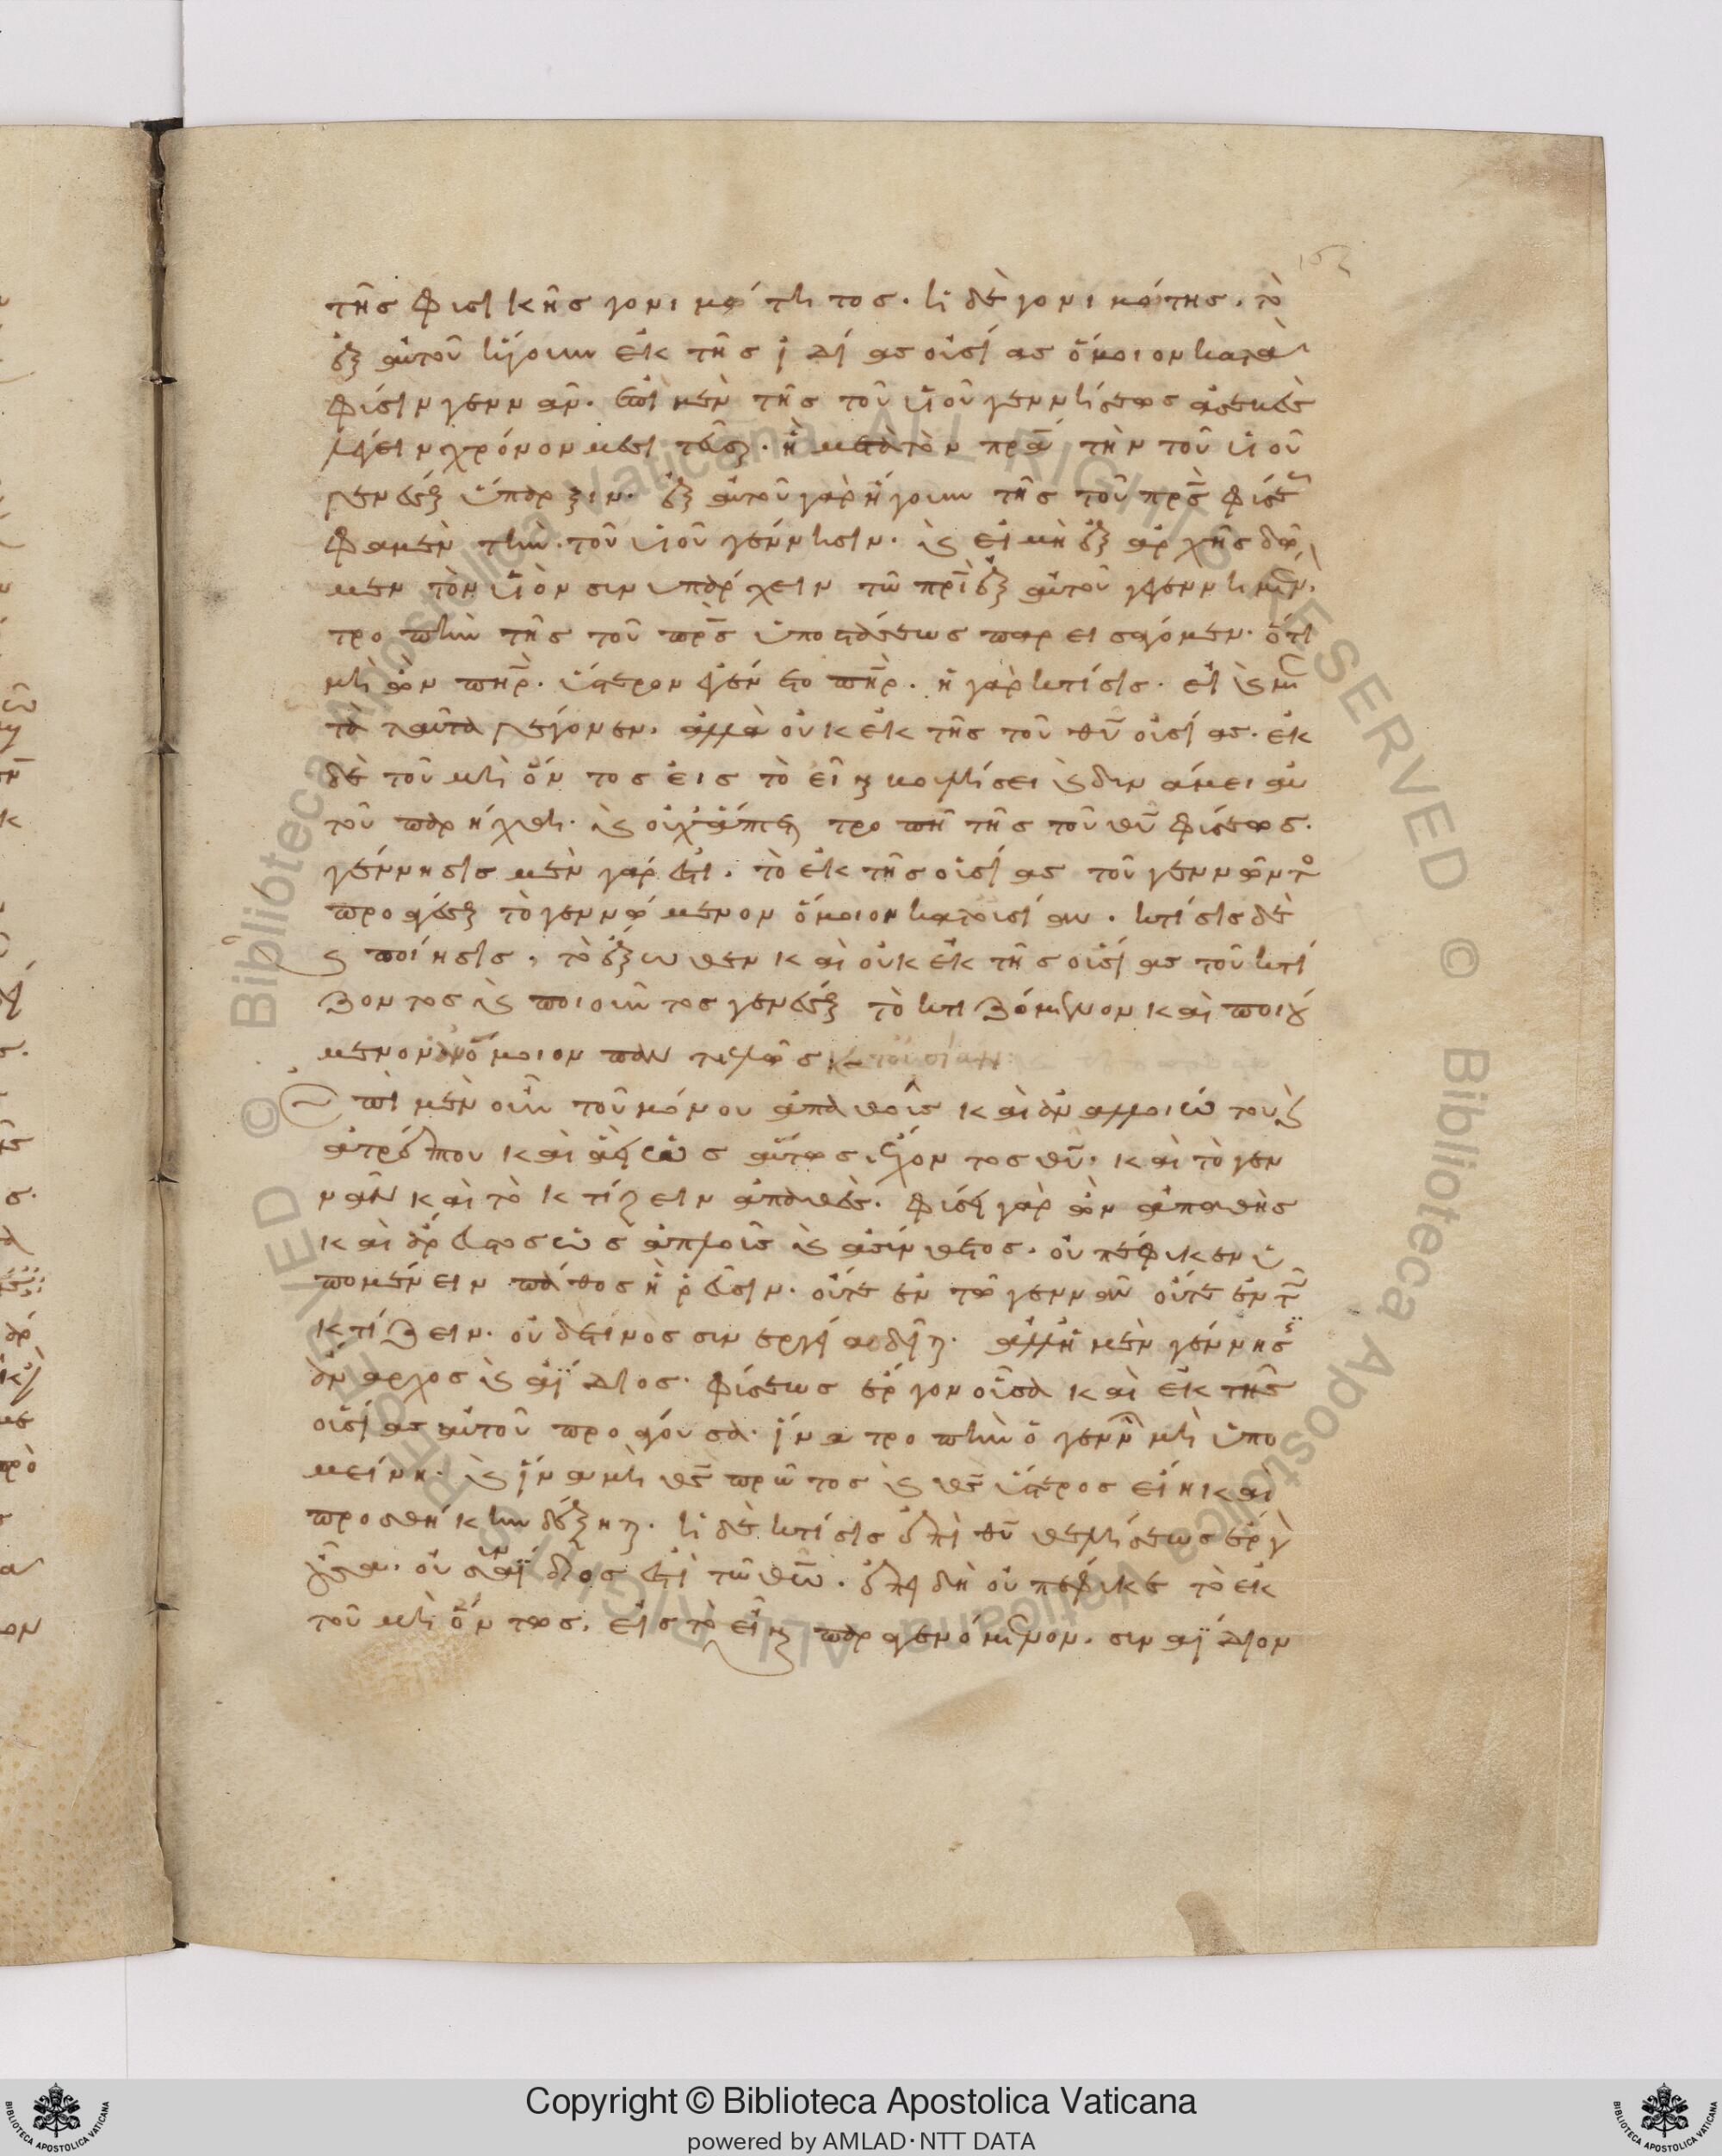 τῆς φυσικῆς γονιμότητος. ἡ δὲ γονιμότης, τὸ
ἐξ αὐτοῦ ἤγουν ἐκ τῆς ἰδίας οὐσίας ὅμοιον κατὰ
φύσιν γεννᾶν. ἐπὶ μὲν τῆς τοῦ υἱοῦ γεννήσεως ἀσεβὲς
λέγειν χρόνον μεσιτεῦσαι. ἢ μετὰ τὸν πρα τὴν τοῦ υἱοῦ
γενέσθαι ὕπαρξιν. ἐξ αὐτοῦ γὰρ ἤγουν τῆς τοῦ πρς φύσεως
φαμὲν τὴν τοῦ υἱοῦ γέννησιν. καὶ εἰ μὴ ἐξ ἀρχῆς δῶ
μεν τὸν υἱὸν συνυπάρχειν τῶ πρὶ ἐξ αὐτοῦ γεγεννημένον,
τροπὴν τῆς τοῦ πρς ὑποστάσεως παρεισάγομεν. ὅτι
μὴ ὢν πηρ. ὕστερον ἐγένετο πηρ. ἡ γὰρ κτίσις. εἰ καὶ με
τὰ ταῦτα γέγονεν, ἀλλὰ οὐκ ἐκ τῆς τοῦ θυ οὐσίας. ἐκ
δὲ τοῦ μὴ ὄντος εἰς τὸ εἶναι βουλήσει καὶ δυνάμει αὐ
τοῦ παρήχθη. καὶ οὐχ ἅπτεται τροπὴ τῆς τοῦ θυ φύσεως.
γέννησις μὲν γάρ ἐστι, τὸ ἐκ τῆς οὐσίας τοῦ γεννῶντος
προάγεσθαι τὸ γεννώμενον ὅμοιον κατ' οὐσίαν. κτίσις δὲ
καὶ ποίησις, τὸ ἔξωθεν καὶ οὐκ ἐκ τῆς οὐσίας τοῦ κτί
ζοντος καὶ ποιοῦντος γενέσθαι τὸ κτιζόμενον καὶ ποιού
μενον ἀνόμοιον παντελῶς κατ' οὐσίαν:
Ἐπὶ μὲν οὖν τοῦ μόνου ἀπαθοῦς καὶ ἀναλλοιώτου καὶ
ἀτρέπτου καὶ ἀεὶ ὡσαύτως ἔχοντος θυ. καὶ τὸ γεν
νᾶν καὶ τὸ κτίζειν ἀπαθές. φύσει γὰρ ὢν ἀπαθὴς
καὶ ἄρευστος ὡς ἁπλοῦς καὶ ἀσύνθετος. οὐ πέφυκεν ὑ
πομένειν πάθος ἢ ῥεῦσιν. οὔτε ἐν τῶ γεννᾶν οὔτε ἐν τῶ
κτίζειν. οὐδέ τινος συνεργίας δεῖται. ἀλλ' ἡ μὲν γέννησις
ἄναρχος καὶ ἀΐδιος. φύσεως ἔργον οὖσα καὶ ἐκ τῆς
οὐσίας αὐτοῦ προάγουσα. ἵνα τροπὴν ὁ γεννῶν μὴ ὑπο
μείνη. καὶ ἵνα μὴ θς πρῶτος καὶ θς ὕστερος εἴη καὶ
προσθήκην δέξηται. ἡ δὲ κτίσις ἐπὶ θυ θελήσεως ἔργον
οὖσα. οὐ συναΐδιός ἐστι τῶ θω. ἐπειδὴ οὐ πέφυκε τὸ ἐκ
τοῦ μὴ ὄντος, εἰς τὸ εἶναι παραγενόμενον. συναΐδιον
Copyright © Biblioteca Apostolica Vaticana
powered by AMLAD·NTT DATA